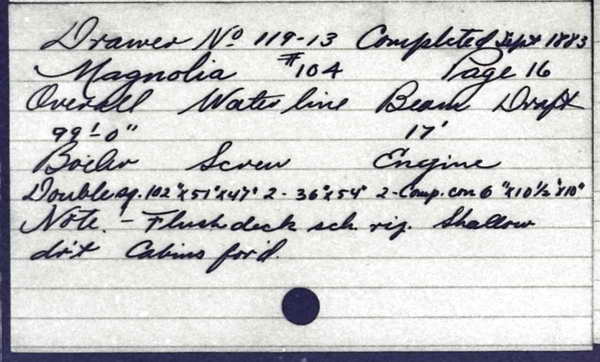 Drawer No 119-13 Completed Sept 1883
Magnolia #104 Page 16
Overall Waterline Beam Draft
99'-0" 17'
Boiler Screw Engine
Double sq. 102"x51"x47" 2-36"x54" 2-Comp. con 6"x10½"x10"
Note. - Flush deck sch. rig. Shallow
dr't Cabins for'd.